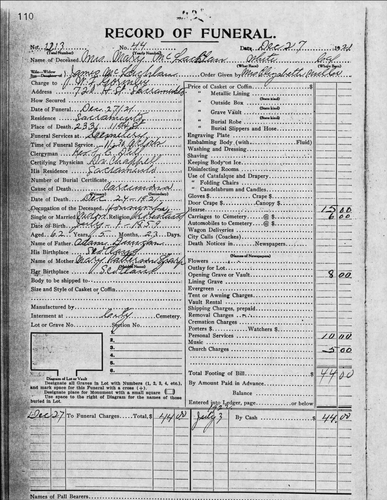 110
RECORD OF FUNERAL.
No. 1213 No. 44 Date, Dec 27 19
(Total Number) (Yearly Number)
Name of Deceased Mrs Mary McLachlan White
(What Race)
Widow of James McLachlan Order Given by Mrs Elizabeth
Charge to
Address 721 H St Sacramento
How Secured
Date of Funeral Dec 27/21
Residence Sacramento
Place of Death 2331 11th St
Funeral Services at Cemetery
Time of Funeral Service 11 30 o'clock
Clergyman Rev
Certifying Physician
His Residence Sacramento
Number of Burial Certificate
Cause of Death Carcinoma
Date of Death Dec 24 1921
Occupation of the Deceased
Single or Married Widow Religion
Date of Birth July 1 1859
Aged 62 Years 5 Months 23 Days
Name of Father Adam
His Birthplace Scotland
Name of Mother Mary
Her Birthplace Scotland
Body to be shipped to
Size and Style of Casket or Coffin
Manufactured by
Interment at Cemetery
Lot or Grave No. Section No.
1
2
3
4
5
6
Diagram of Lot or Vault
Designate all Graves in Lot with Numbers (1, 2, 3, 4, etc.), and mark space for this Funeral with a cross (+).
Designate place for Monument with a small square □
Use space to the right of Diagram for the names of those buried in Lot.
Price of Casket or Coffin $
" Metallic Lining
(State kind)
" Outside Box
(State kind)
" Grave Vault
(State kind)
" Burial Robe
(State kind)
" Burial Slippers and Hose
Engraving Plate
Embalming Body (with Fluid)
Washing and Dressing
Shaving
Keeping Body on Ice
Disinfecting Rooms
Use of Catafalque and Drapery
" Folding Chairs
" Candelabrum and Candles
Gloves $ Crape $
Door Crape $
Hearse 15 00
Carriages to Cemetery @ $ 6 00
Automobiles to Cemetery @ $
Wagon Deliveries
City Calls (Coaches)
Death Notices in Newspapers
Flowers
Outlay for Lot
Opening Grave or Vault 8 00
Lining Grave
Evergreen
Tent or Awning Charges
Vault Rental
Shipping Charges, prepaid
Removal Charges
Cremation Charges
Porters $ Watchers $
Personal Services 10 00
Music
Church Charges 5 00
Total Footing of Bill $ 44 00
By Amount Paid in Advance
Balance $
Entered into Ledger, page or below $
Dec 27 To Funeral Charges, Total, $ 44 00 July 3 By Cash $ 44 00
Names of Pall Bearers